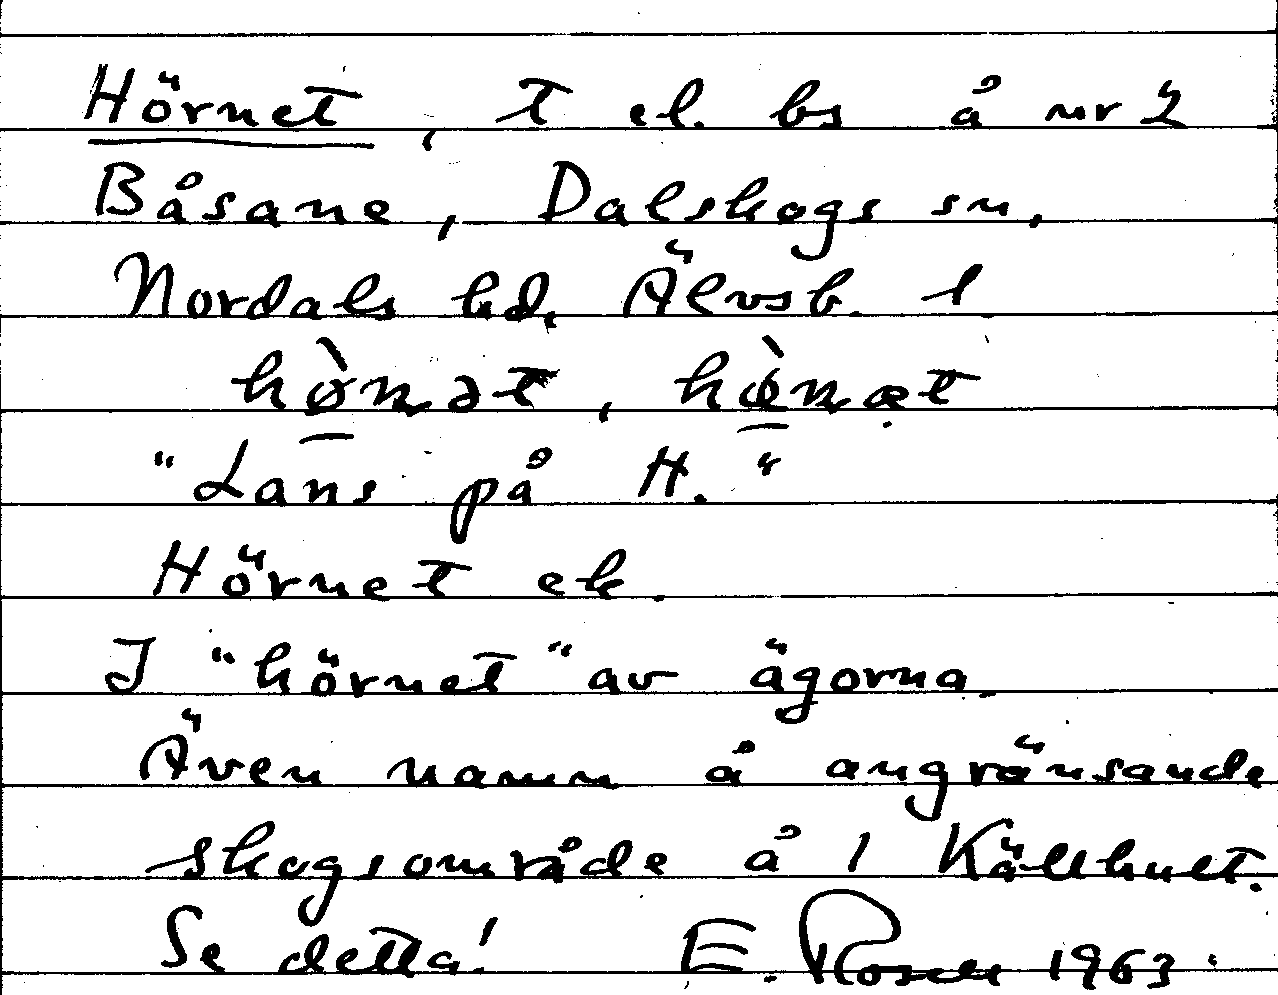 Hörnet, t el. bs å nr 2
Båsane, Dalskogs sn,
Nordals hd, Älvsb. l
hø̀ṇət, hø̀ṇæt
"Lans på H."
Hörnet ek.
I "hörnet" av ägorna.
Även namn å angränsande
skogsområde å 1 Källhult.
Se detta! E. Rosell 1963.